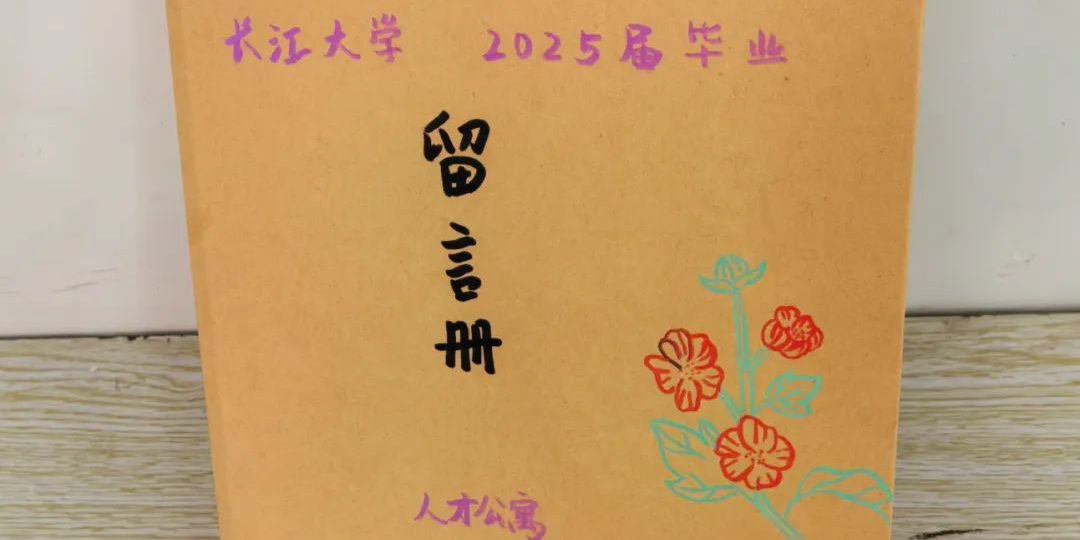 长江大学 2025届毕业
留言册
人才公寓